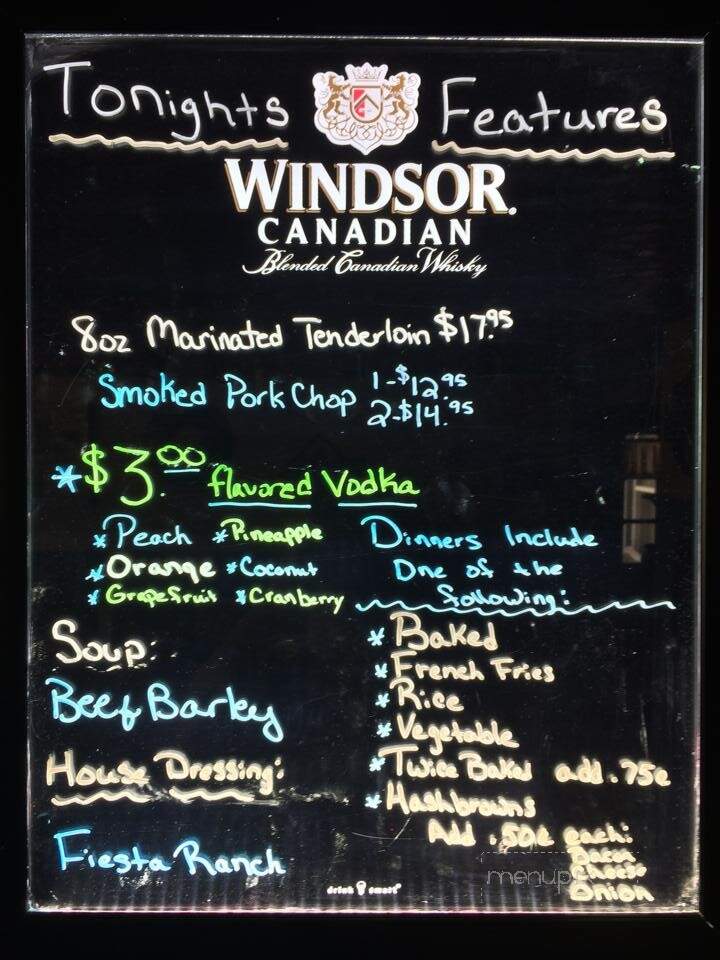 Tonights Features
WINDSOR.
CANADIAN
Blended Canadian Whisky
8oz Marinated Tenderloin $17.95
Smoked Pork Chop 1-$12.95
2-$14.95
*$3.00 flavored Vodka
*Peach *Pineapple
*Orange *Coconut
*Grapefruit *Cranberry
Dinners Include
One of the
following:
*Baked
*French Fries
*Rice
*Vegetable
*Twice Baked add .75¢
*Hashbrowns
Add .50¢ each:
Bacon
Cheese
Onion
Soup:
Beef Barley
House Dressing:
Fiesta Ranch
drink smart